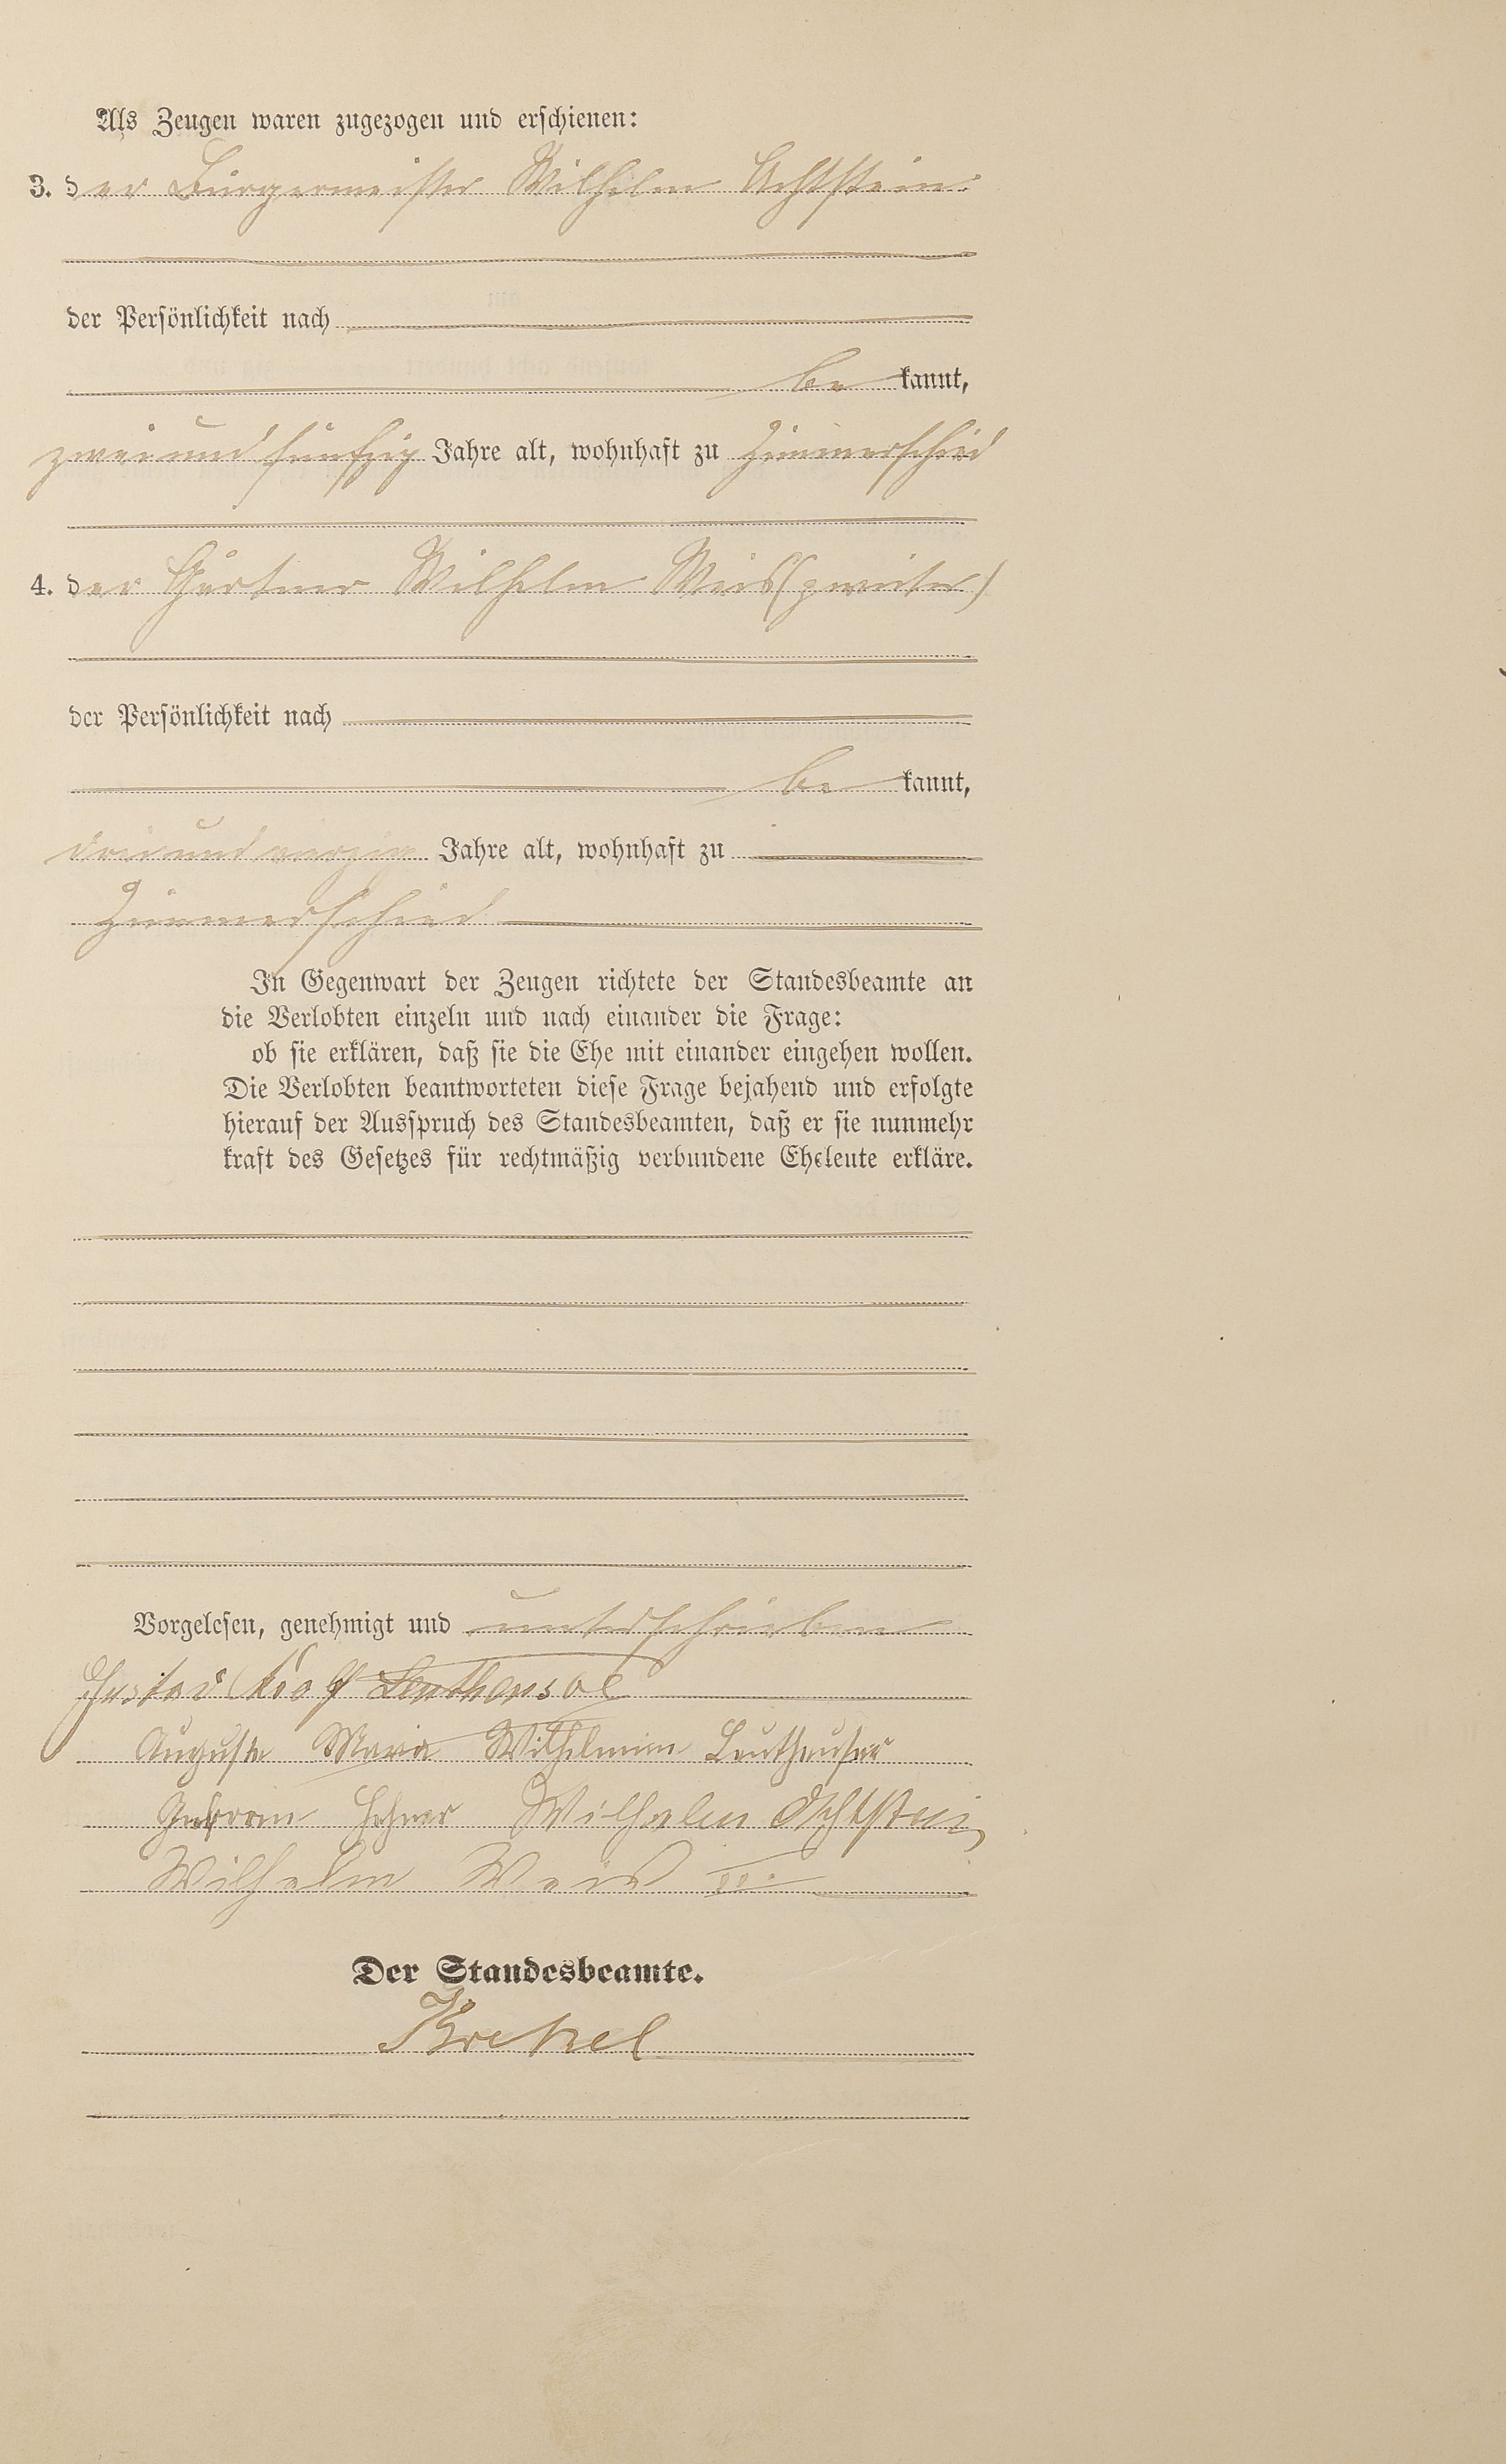 Als Zeugen waren zugezogen und erschienen:
3. der Bürgermeister Wilhelm Achtstein
der Persönlichkeit nach
be kannt,
zwei und fünfzig Jahre alt, wohnhaft zu Zimmerschied
4. der Gärtner Wilhelm Weis (zweiter)
der Persönlichkeit nach
be kannt,
drei und vierzig Jahre alt, wohnhaft zu
Zimmerschied
In Gegenwart der Zeugen richtete der Standesbeamte an
die Verlobten einzeln und nach einander die Frage:
ob sie erklären, daß sie die Ehe mit einander eingehen wollen.
Die Verlobten beantworteten diese Frage bejahend und erfolgte
hierauf der Ausspruch des Standesbeamten, daß er sie nunmehr
kraft des Gesetzes für rechtmäßig verbundene Eheleute erkläre.
Vorgelesen, genehmigt und unterschrieben
Gustav
Auguste Maria Wilhelmine Leuthäuser
Wilhelm Achtstein
Wilhelm Weis II.
Der Standesbeamte.
Krekel